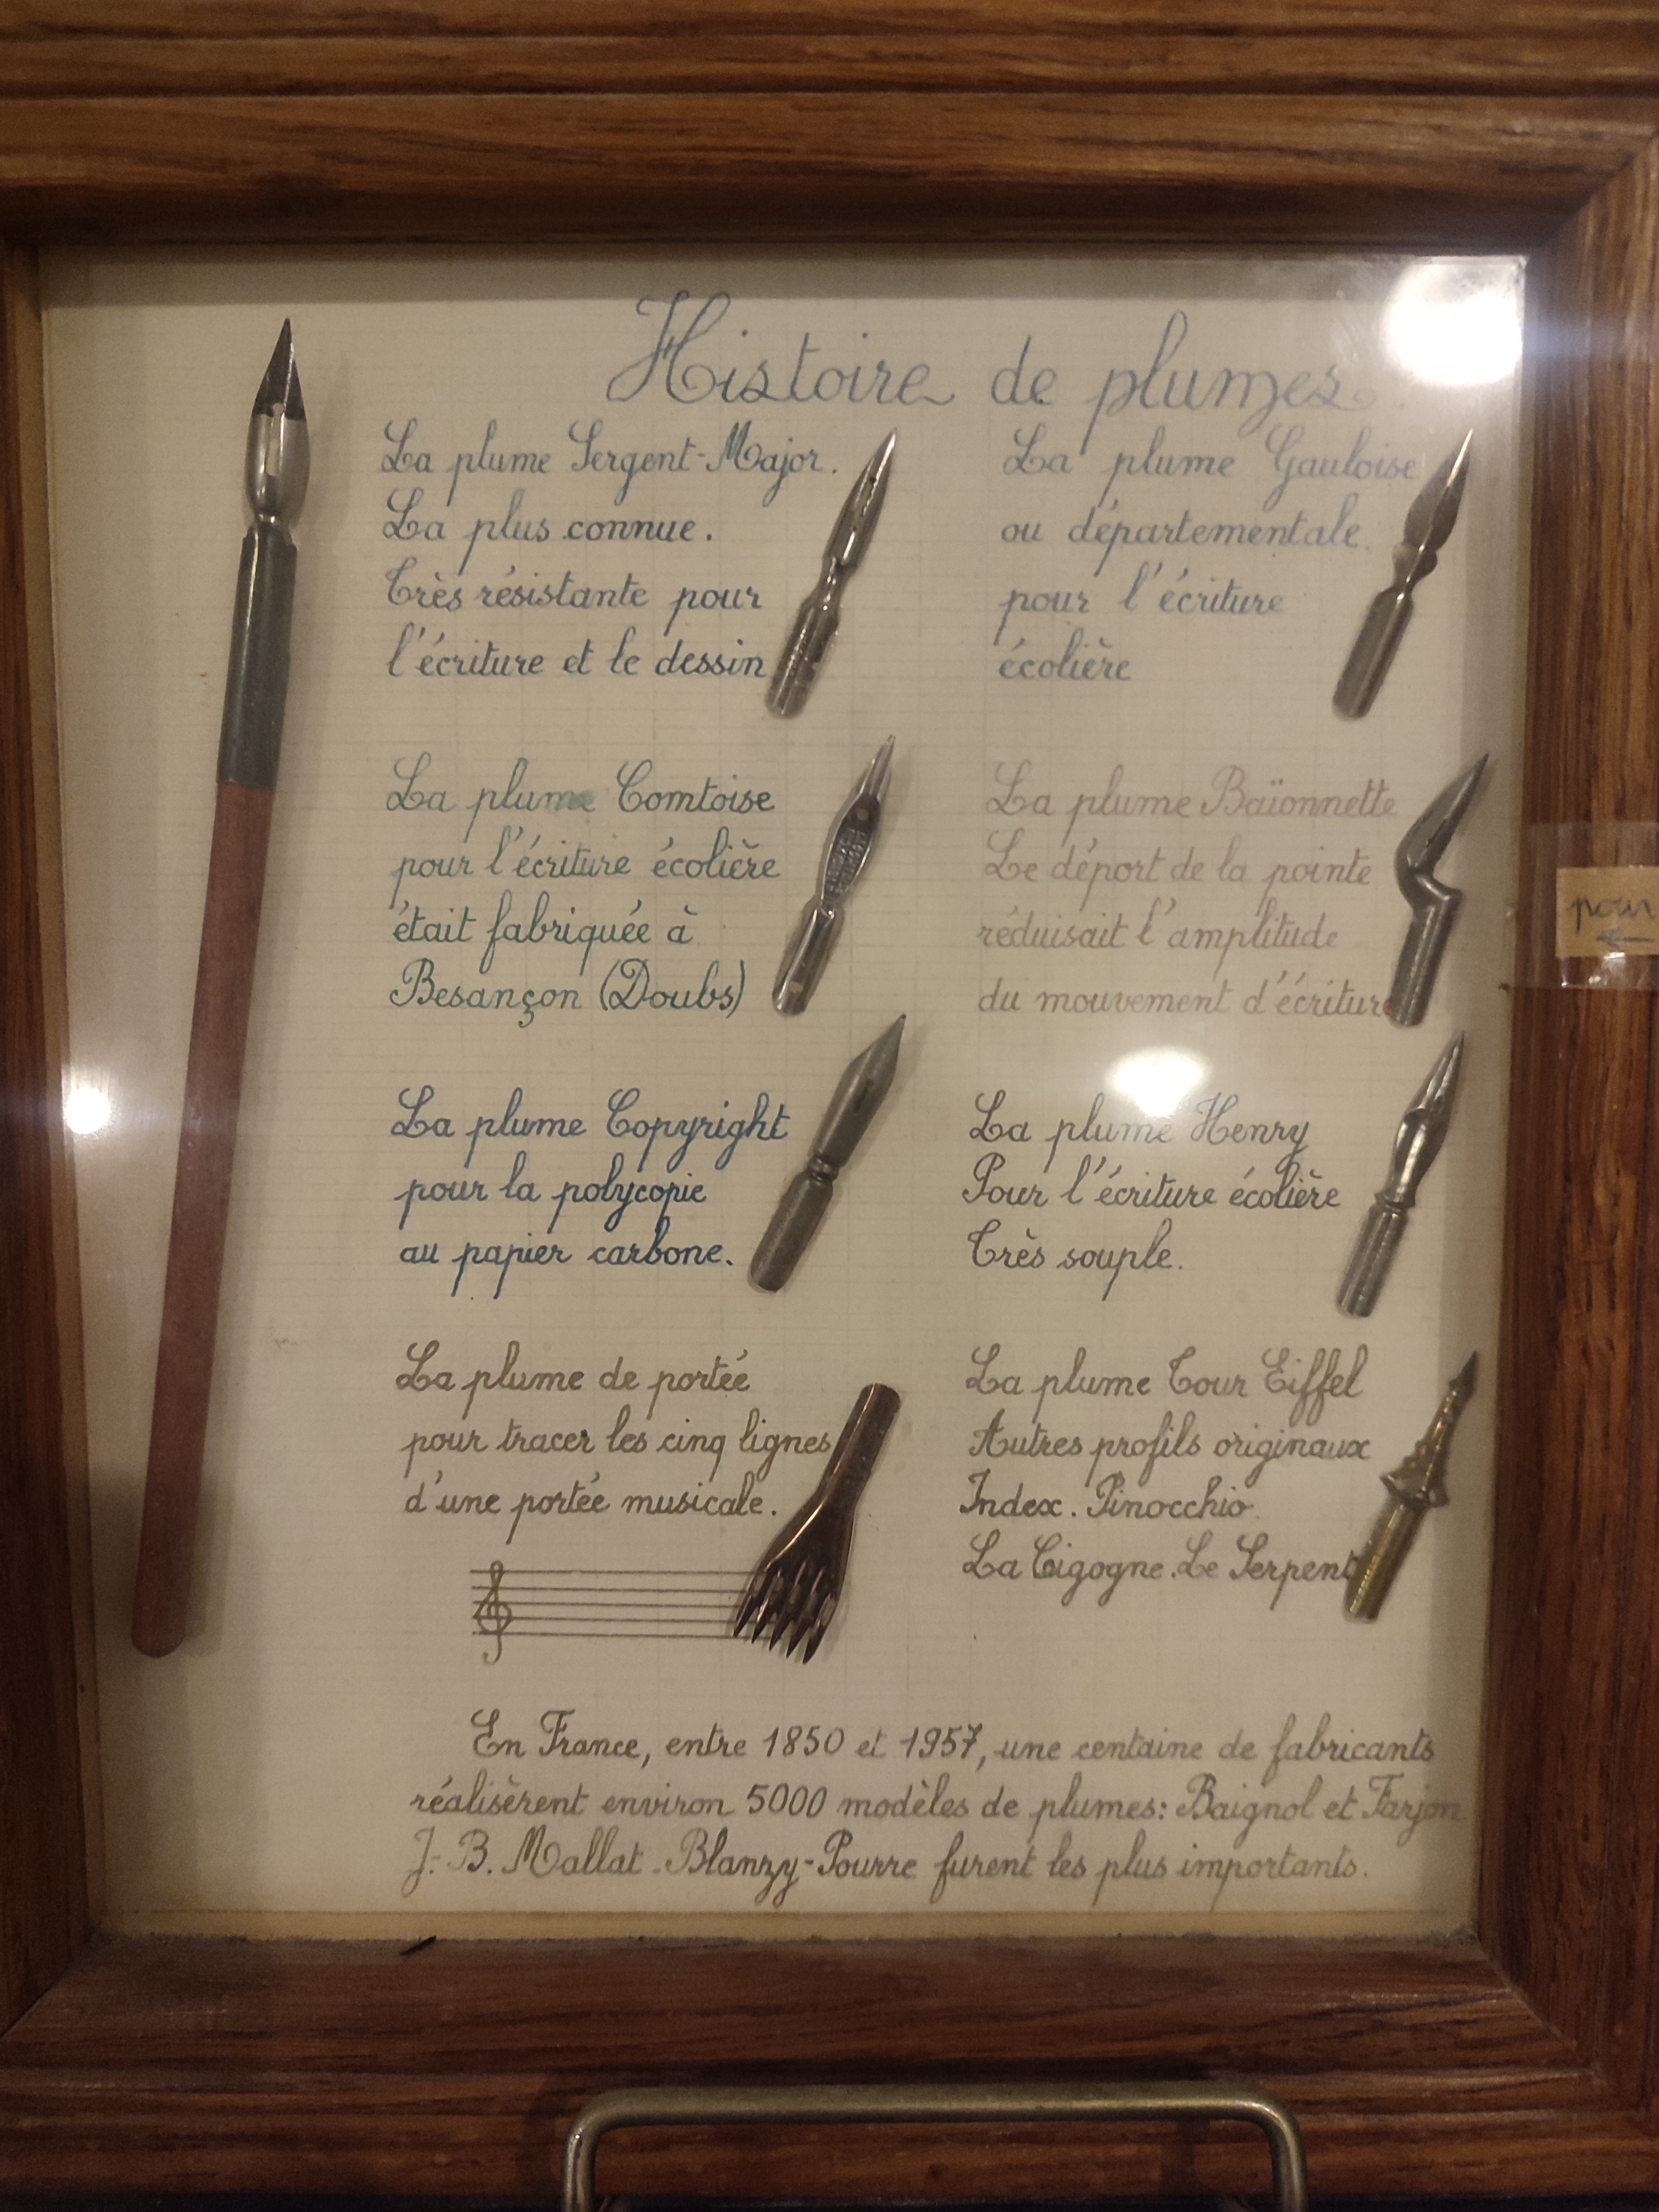 Histoire de plumes
La plume Sergent-Major.
La plus connue.
Très résistante pour
l'écriture et le dessin
La plume Gauloise
ou départementale
pour l'écriture
écolière
La plume Comtoise
pour l'écriture écolière
était fabriquée à
Besançon (Doubs)
La plume Baïonnette
Le déport de la pointe
réduisait l'amplitude
du mouvement d'écriture
La plume Copyright
pour la polycopie
au papier carbone.
La plume Henry
Pour l'écriture écolière
Très souple.
La plume de portée
pour tracer les cinq lignes
d'une portée musicale.
La plume Tour Eiffel
Autres profils originaux
Index. Pinocchio.
La Cigogne. Le Serpent
En France, entre 1850 et 1957, une centaine de fabricants
réalisèrent environ 5000 modèles de plumes: Baignol et Farjon
J.-B. Mallat - Blanzy-Pourre furent les plus importants.
pour